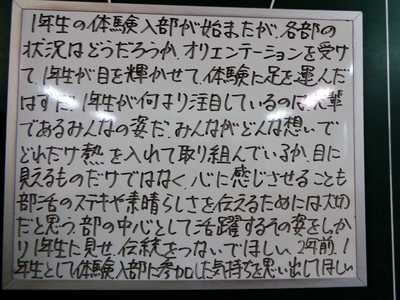 1年生の体験入部が始またが、各部の
状況はどうだろうか。オリエンテーションを受け
て1年生が目を輝かせて、体験に足を運んだ
はずだ。1年生が何より注目しているのは、先輩
であるみんなの姿だ。みんながどんな想いで
どれだけ熱を入れて取り組んでいるか、目に
見えるものだけではなく、心に感じさせることも
部活のステキや素晴らしさを伝えるためには大切
だと思う。部の中心として活躍するその姿をしっか
り1年生に見せ、伝統をつないでほしい。2年前、1
年生として体験入部に参加した気持ちを思い出してほしい